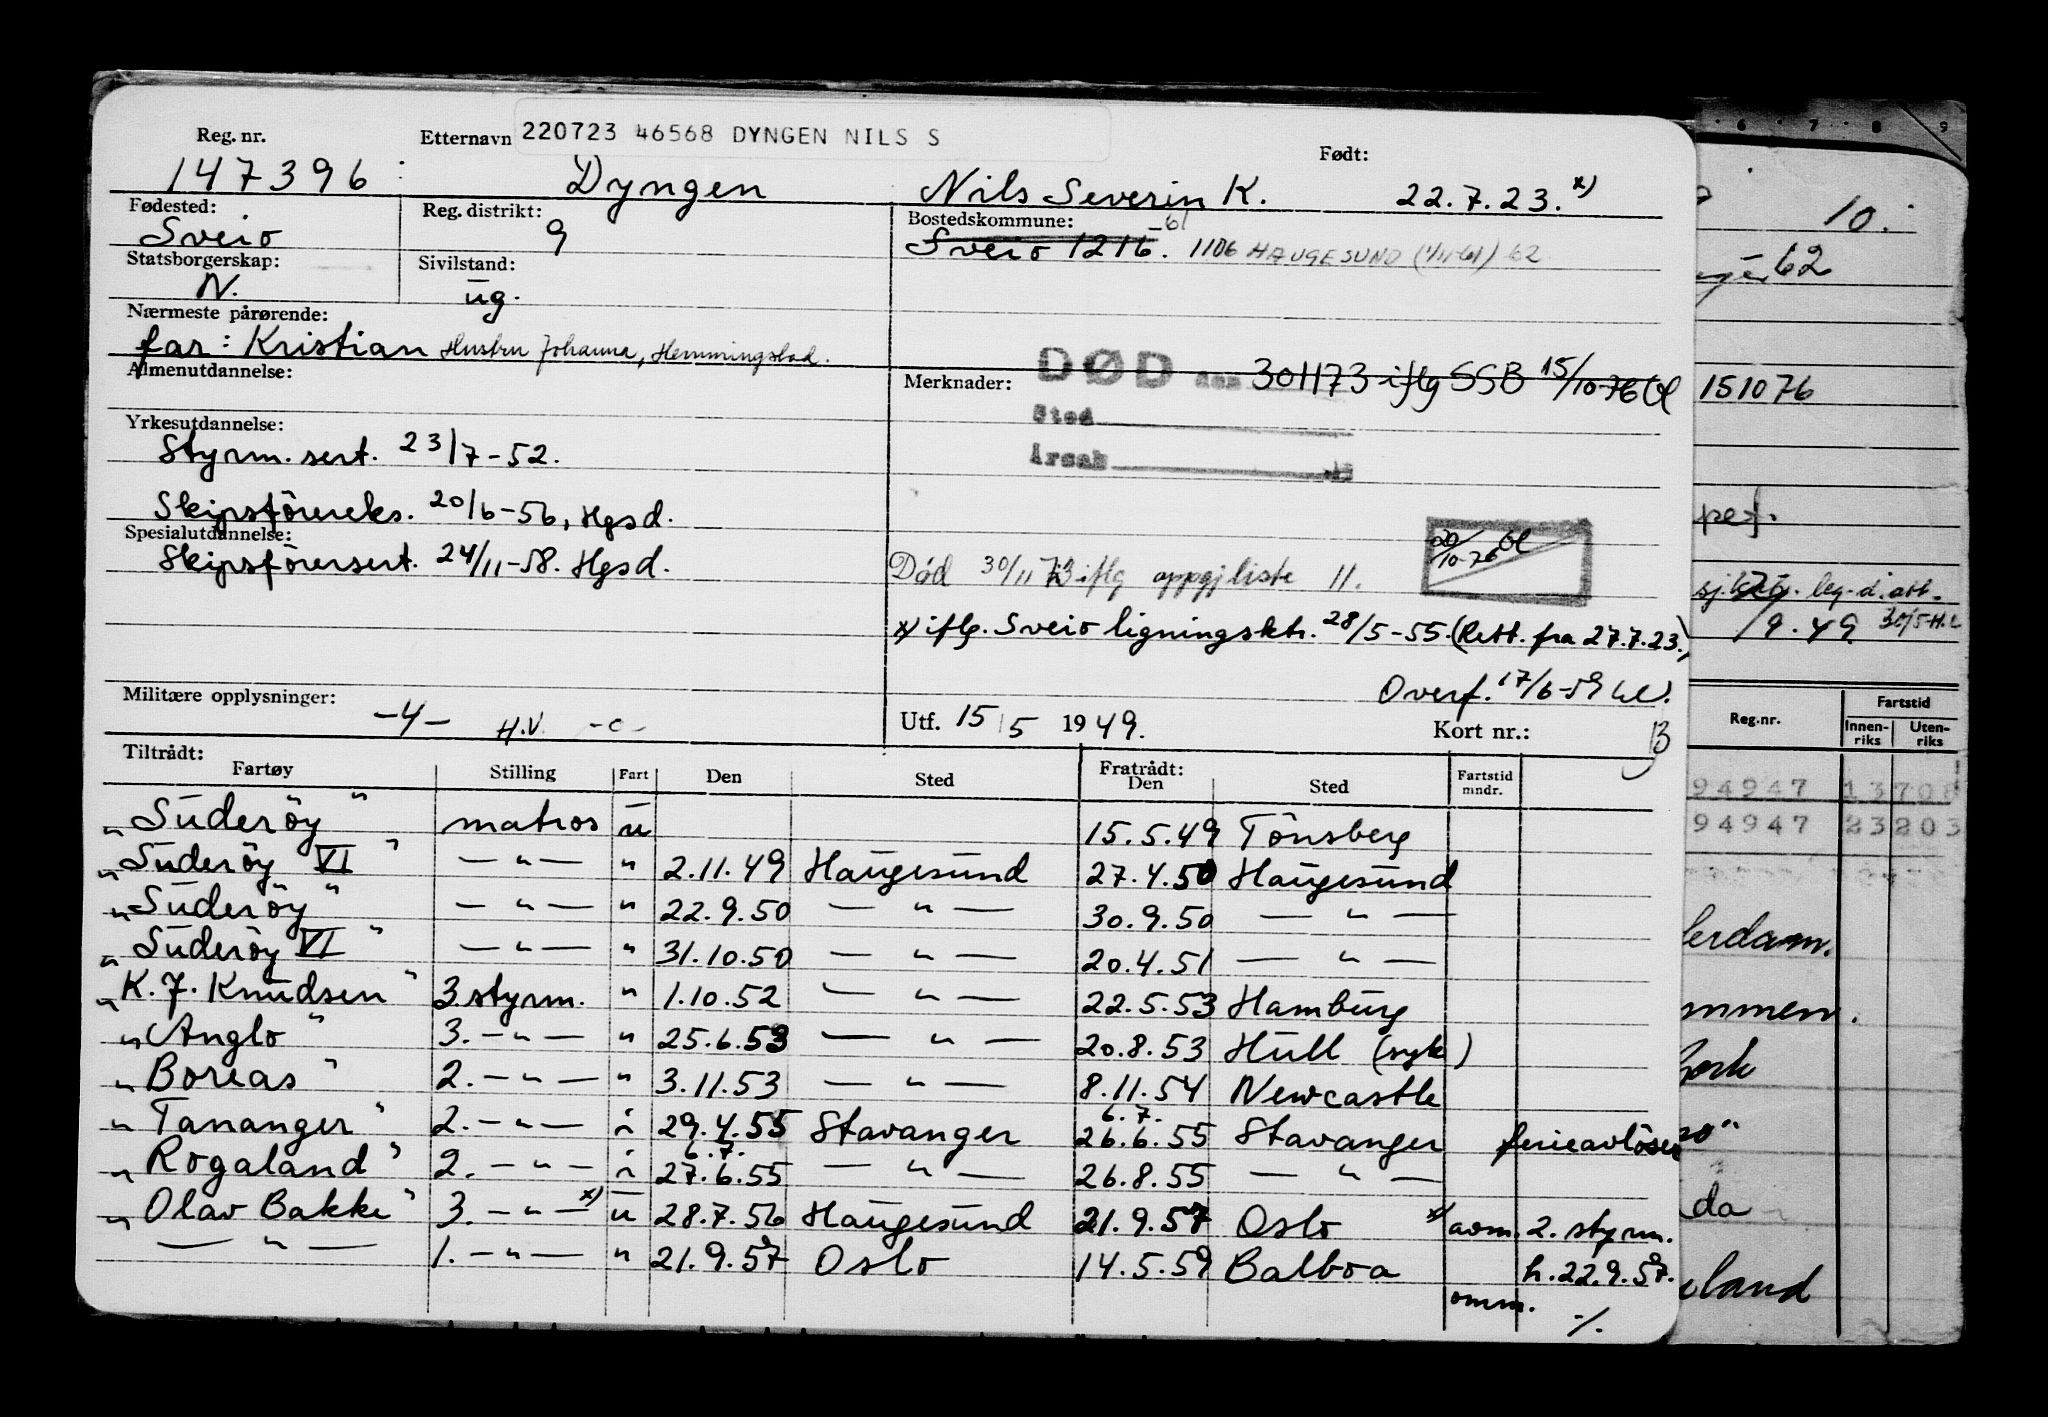 Reg. nr. Etternavn 220723 46568 DYNGEN NILS S Født:
147396 Dyngen Nils Severin K. 22.7.23. x)
Fødested: Reg. distrikt: Bostedskommune:
Sveio 9 Sveio 1216. -61 1106 HAUGESUND (1/11-61) 62
Statsborgerskap: Sivilstand:
N. ug.
Nærmeste pårørende:
far: Kristian Hustru Johanna, Hemmingstad.
Almenutdannelse: Merknader: DØD den 301173 iflg SSB 15/10-76
Sted
Årsak
Yrkesutdannelse:
Styrm. sert. 23/7-52.
Skipsförereks. 20/6-56, Hgsd.
Spesialutdannelse:
Skipsförersert. 24/11-58. Hgsd.
20/10-76
Död 30/11 73 iflg oppgj liste 11.
x) iflg. Sveio ligningsktr. 28/5-55. (Rett. fra 27.7.23.)
Overf. 17/6-59
Militære opplysninger: -4- H.V. -c-
Utf. 15/5 1949. Kort nr.: B
Tiltrådt: Fratrådt:
Fartøy Stilling Fart Den Sted Den Sted Fartstid mndr.
"Suderöy" matros u 15.5.49 Tönsberg
"Suderöy VI" — " — " 2.11.49 Haugesund 27.4.50 Haugesund
"Suderöy" — " — " 22.9.50 — " — 30.9.50 — " —
"Suderöy VI" — " — " 31.10.50 — " — 20.4.51 — " —
"K. J. Knudsen" 3 styrm. " 1.10.52 — " — 22.5.53 Hamburg
"Anglo" 3. — " — " 25.6.53 — " — 20.8.53 Hull (syk)
"Boreas" 2. — " — " 3.11.53 — " — 8.11.54 Newcastle
"Tananger" 2. — " — i 29.4.55 Stavanger 6.7. 26.6.55 Stavanger ferieavlöser
"Rogaland" 2. — " — i 6.7. 27.6.55 — " — 26.8.55 — " —
"Olav Bakke" 3. — " — x) u 28.7.56 Haugesund 21.9.57 Oslo x) avm. 2. styrm.
— " — 1. — " — " 21.9.57 Oslo 14.5.59 Balboa h. 22.9.57.
omm. ./.
6 7 8 9
10.
62
151076
leg-d. att.
9.49 30/5
Reg.nr. Fartstid
Innenriks Utenriks
94947 13708
94947 23203
erdam.
mmen.
da
land